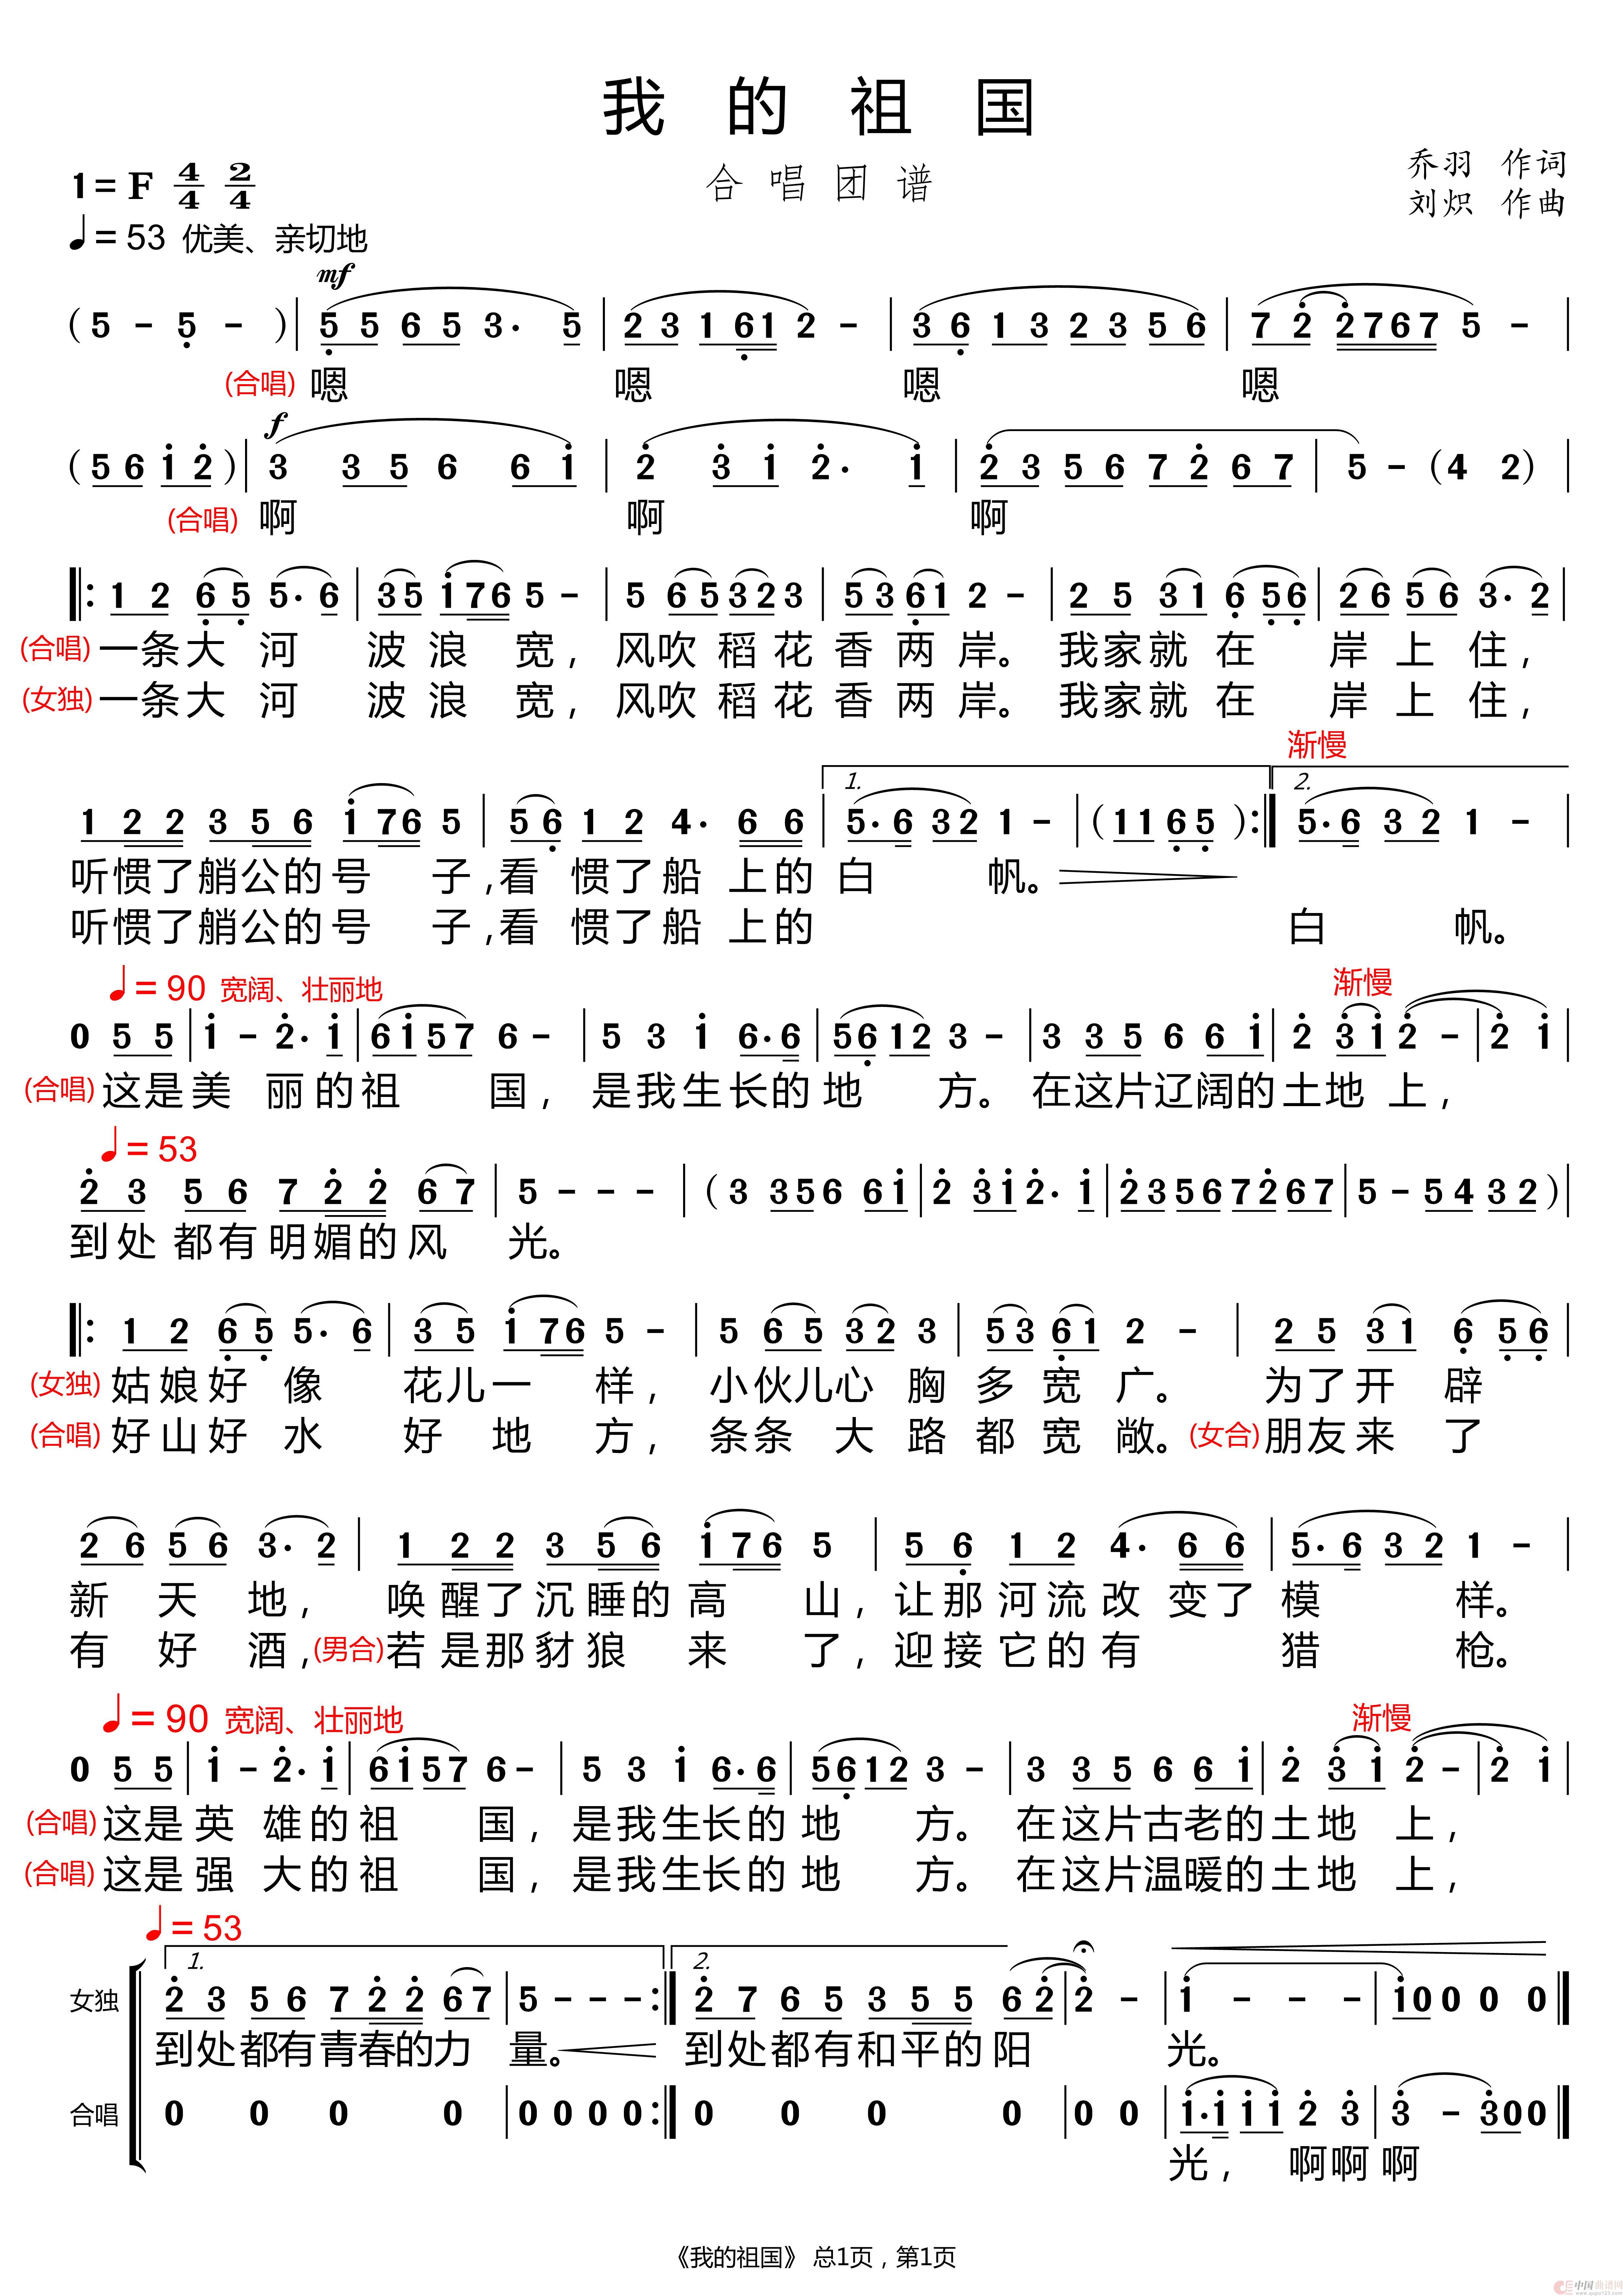 我的祖国
合唱团谱
乔羽 作词
刘炽 作曲
1=F 4/4 2/4
♩=53 优美、亲切地
mf
(5 - 5 - )| 5 5 6 5 3· 5 | 2 3 1 6 1 2 - | 3 6 1 3 2 3 5 6 | 7 2 2 7 6 7 5 - |
(合唱) 嗯 嗯 嗯 嗯
f
(5 6 1 2 )| 3 3 5 6 6 1 | 2 3 1 2· 1 | 2 3 5 6 7 2 6 7 | 5 - (4 2) |
(合唱) 啊 啊 啊
‖: 1 2 6 5 5· 6 | 3 5 1 7 6 5 - | 5 6 5 3 2 3 | 5 3 6 1 2 - | 2 5 3 1 6 5 6 | 2 6 5 6 3· 2 |
(合唱) 一条大河波浪宽，风吹稻花香两岸。我家就在岸上住，
(女独) 一条大河波浪宽，风吹稻花香两岸。我家就在岸上住，
渐慢
1. 2.
1 2 2 3 5 6 1 7 6 5 | 5 6 1 2 4· 6 6 | 5· 6 3 2 1 - | (1 1 6 5 ) :‖ 5· 6 3 2 1 - |
听惯了艄公的号子,看惯了船上的白帆。
听惯了艄公的号子,看惯了船上的白帆。
♩=90 宽阔、壮丽地 渐慢
0 5 5 | 1 - 2· 1 | 6 1 5 7 6 - | 5 3 1 6· 6 | 5 6 1 2 3 - | 3 3 5 6 6 1 | 2 3 1 2 - | 2 1 |
(合唱) 这是美丽的祖国，是我生长的地方。在这片辽阔的土地上，
♩=53
2 3 5 6 7 2 2 6 7 | 5 - - - | (3 3 5 6 6 1 | 2 3 1 2· 1 | 2 3 5 6 7 2 6 7 | 5 - 5 4 3 2 )|
到处都有明媚的风光。
‖: 1 2 6 5 5· 6 | 3 5 1 7 6 5 - | 5 6 5 3 2 3 | 5 3 6 1 2 - | 2 5 3 1 6 5 6 |
(女独) 姑娘好像花儿一样，小伙儿心胸多宽广。为了开辟
(合唱) 好山好水好地方，条条大路都宽敞。(女合)朋友来了
2 6 5 6 3· 2 | 1 2 2 3 5 6 1 7 6 5 | 5 6 1 2 4· 6 6 | 5· 6 3 2 1 - |
新天地，唤醒了沉睡的高山，让那河流改变了模样。
有好酒，(男合)若是那豺狼来了，迎接它的有猎枪。
♩=90 宽阔、壮丽地 渐慢
0 5 5 | 1 - 2· 1 | 6 1 5 7 6 - | 5 3 1 6· 6 | 5 6 1 2 3 - | 3 3 5 6 6 1 | 2 3 1 2 - | 2 1 |
(合唱) 这是英雄的祖国，是我生长的地方。在这片古老的土地上，
(合唱) 这是强大的祖国，是我生长的地方。在这片温暖的土地上，
♩=53
1. 2.
女独 2 3 5 6 7 2 2 6 7 | 5 - - - :‖ 2 7 6 5 3 5 5 6 2 | 2 - | 1 - - - | 1 0 0 0 0 ‖
到处都有青春的力量。到处都有和平的阳光。
合唱 0 0 0 0 | 0 0 0 0 :‖ 0 0 0 0 | 0 0 | 1· 1 1 1 2 3 | 3 - 3 0 0 ‖
光，啊啊啊
《我的祖国》 总1页，第1页
中国曲谱网